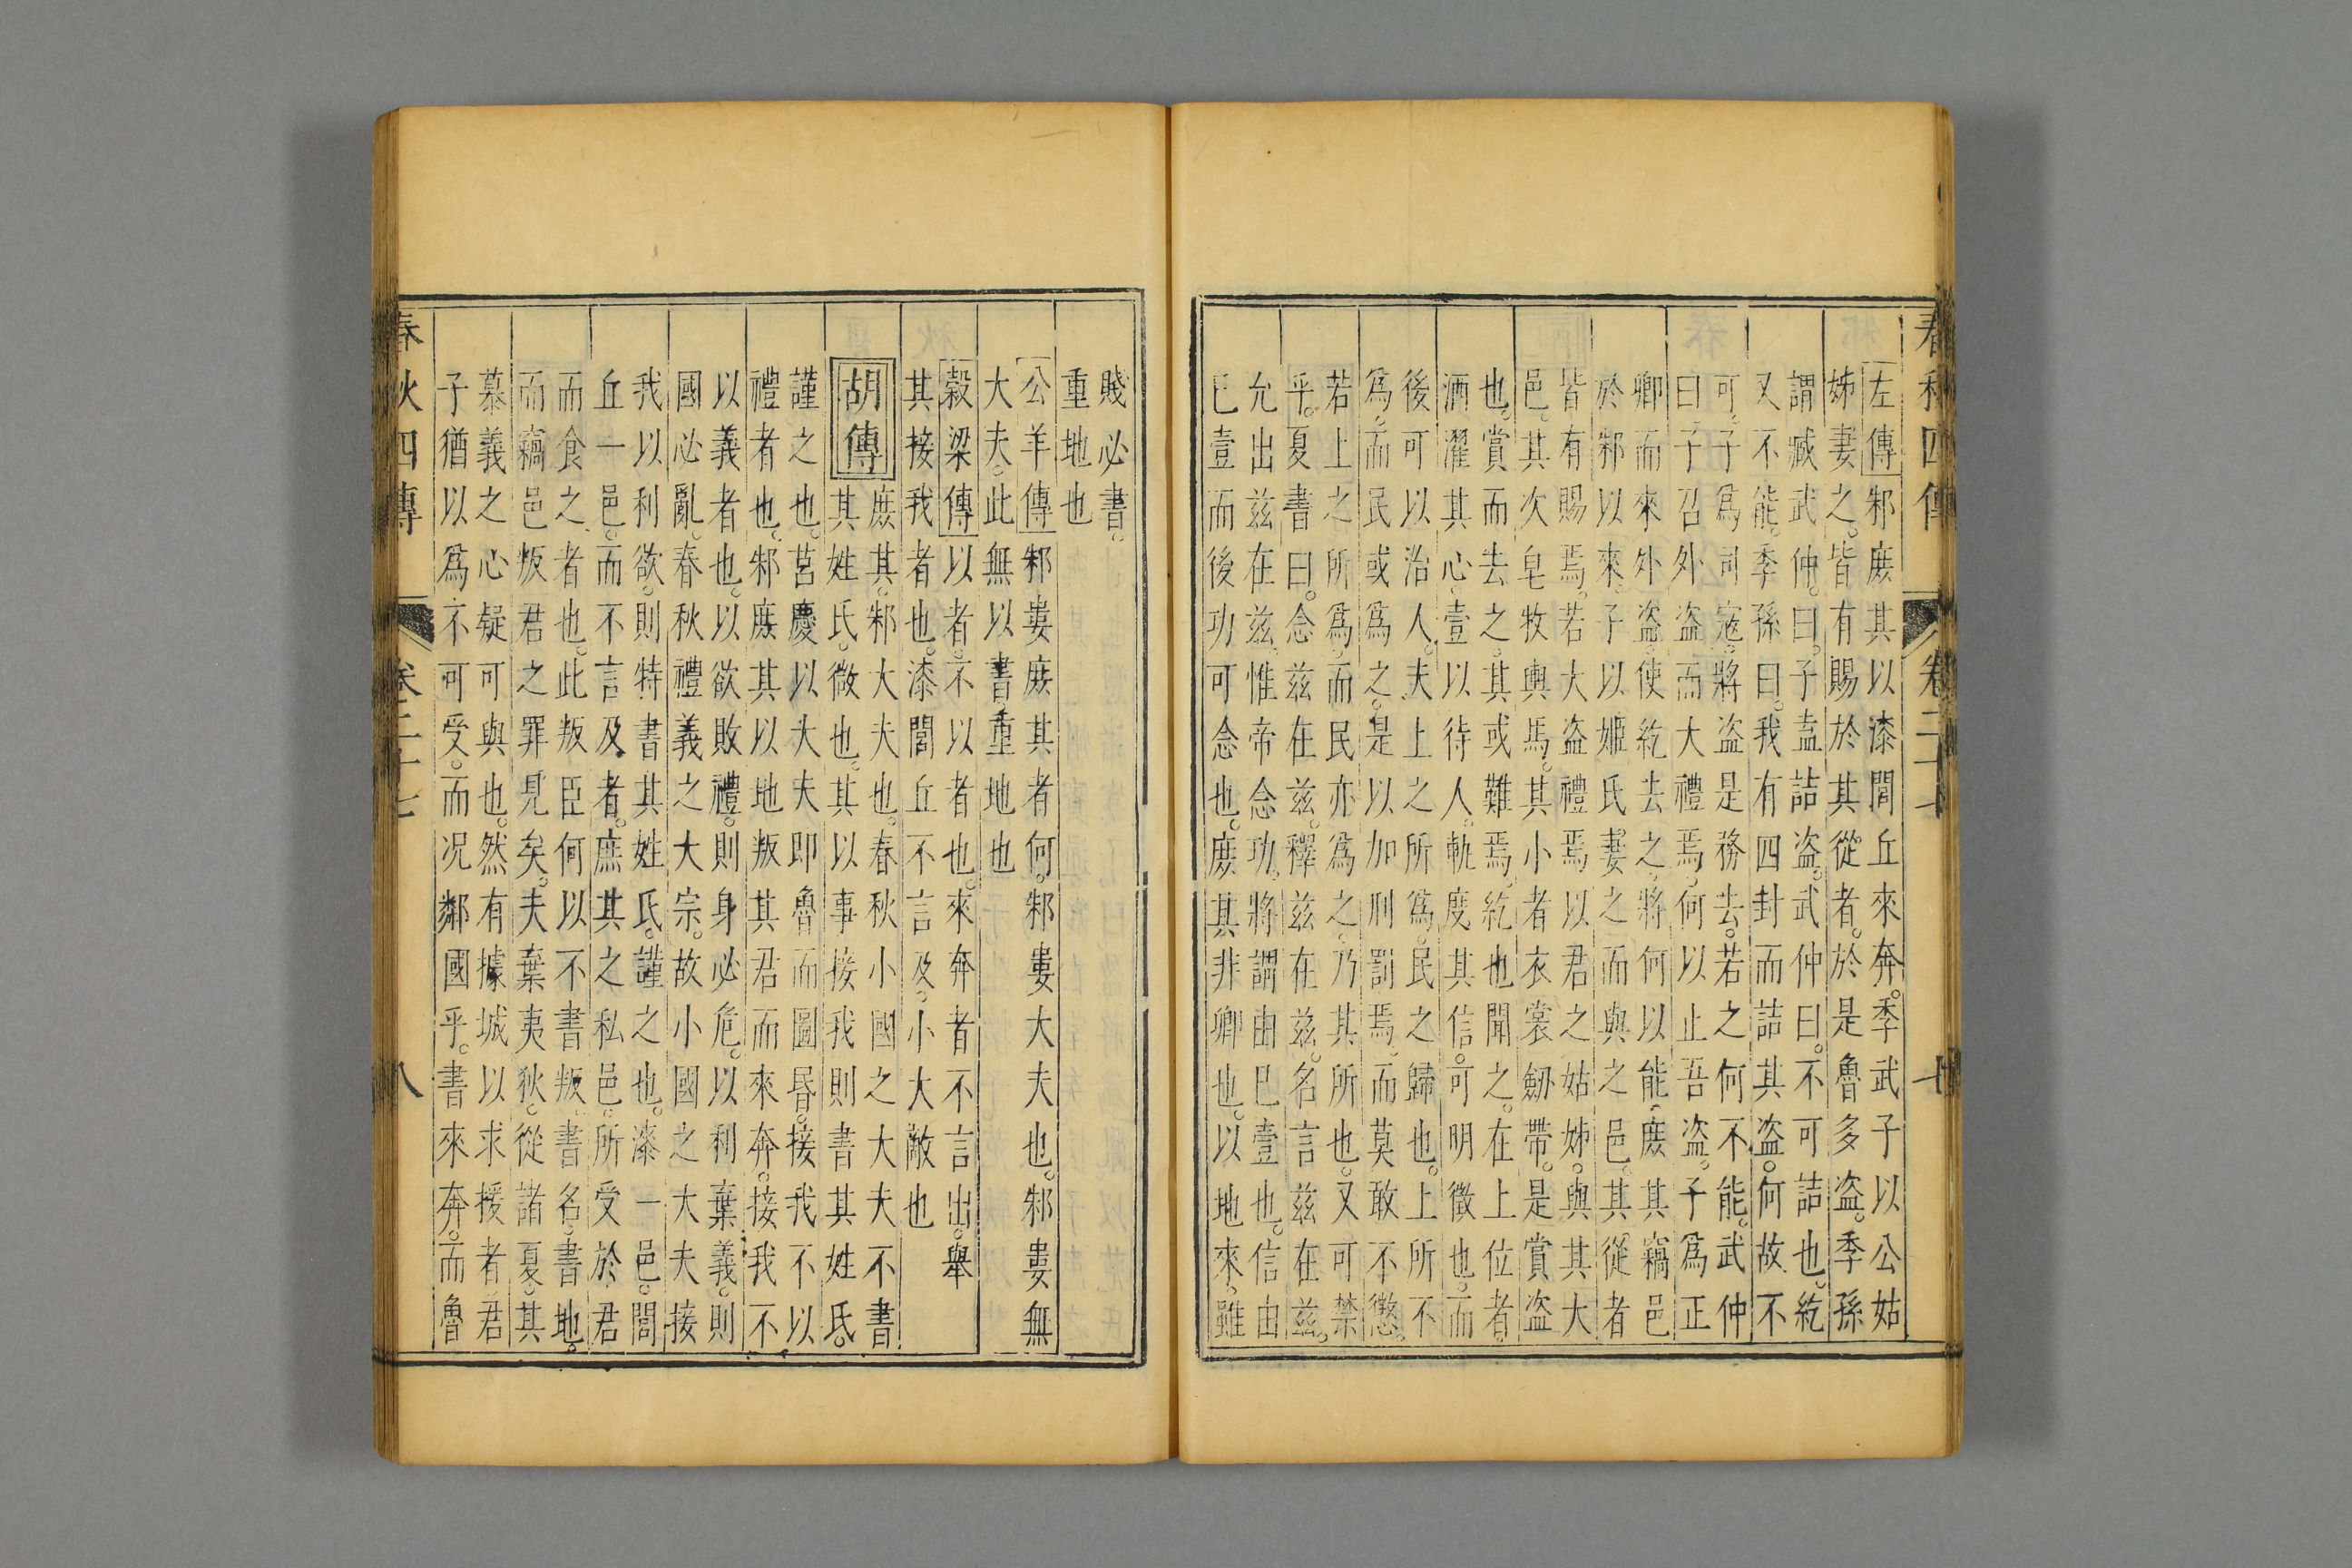 春秋四傳 卷二十七 七
左傳 邾庶其以漆閭丘來奔。季武子以公姑
姊妻之。皆有賜於其從者。於是魯多盗。季孫
謂臧武仲曰。子盍詰盗。武仲曰。不可詰也。紇
又不能。季孫曰。我有四封而詰其盗。何故不
可。子爲司寇。將盗是務去。若之何不能。武仲
曰。子召外盗而大禮焉。何以止吾盗。子爲正
卿而來外盗。使紇去之。將何以能。庶其竊邑
於邾以來。子以姬氏妻之而與之邑。其從者
皆有賜焉。若大盗禮焉以君之姑姊。與其大
邑。其次皂牧輿馬。其小者衣裳劒帶。是賞盗
也。賞而去之。其或難焉。紇也聞之。在上位者
洒濯其心。壹以待人。軌度其信。可明徵也。而
後可以治人。夫上之所爲。民之歸也。上所不
爲。而民或爲之。是以加刑罰焉。而莫敢不懲。
若上之所爲。而民亦爲之。乃其所也。又可禁
乎。夏書曰。念兹在兹。釋兹在兹。名言兹在兹。
允出兹在兹。惟帝念功。將謂由已壹也。信由
已壹而後功可念也。庶其非卿也。以地來。雖
賤必書。
重地也
公羊傳 邾婁庶其者何。邾婁大夫也。邾婁無
大夫。此無以書。重地也
榖梁傳 以者。不以者也。來奔者不言出。舉
其接我者也。漆閭丘不言及。小大敵也
胡傳 庶其。邾大夫也。春秋小國之大夫不書
其姓氏。微也。其以事接我則書其姓氏。
謹之也。莒慶以大夫即魯而圖昏。接我不以
禮者也。邾庶其以地叛其君而來奔。接我不
以義者也。以欲敗禮。則身必危。以利棄義。則
國必亂。春秋禮義之大宗。故小國之大夫接
我以利欲。則特書其姓氏。謹之也。漆一邑。閭
丘一邑。而不言及者。庶其之私邑。所受於君
而食之者也。此叛臣何以不書叛。書名。書地。
而竊邑叛君之罪見矣。夫棄夷狄。從諸夏。其
慕義之心疑可與也。然有據城以求援者。君
子猶以爲不可受。而况鄰國乎。書來奔。而魯
春秋四傳 卷二十七 八